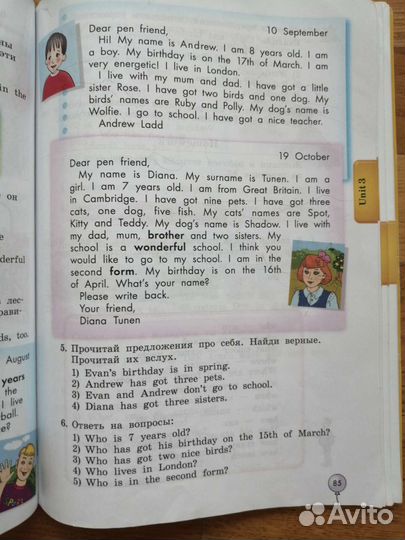 ны
эти
n the
он
derful
лес-
рави-
ds, too.
August
years
the
I live
ball.
Dear pen friend, 10 September
Hi! My name is Andrew. I am 8 years old. I am
a boy. My birthday is on the 17th of March. I am
very energetic! I live in London.
I live with my mum and dad. I have got a little
sister Rose. I have got two birds and one dog. My
birds' names are Ruby and Polly. My dog's name is
Wolfie. I go to school. I have got a nice teacher.
Andrew Ladd
19 October
Dear pen friend,
My name is Diana. My surname is Tunen. I am a
girl. I am 7 years old. I am from Great Britain. I live
in Cambridge. I have got nine pets. I have got three
cats, one dog, five fish. My cats' names are Spot,
Kitty and Teddy. My dog's name is Shadow. I live with
my dad, mum, brother and two sisters. My
school is a wonderful school. I think you
would like to go to my school. I am in the
second form. My birthday is on the 16th
of April. What's your name?
Please write back.
Your friend,
Diana Tunen
Unit 3
5. Прочитай предложения про себя. Найди верные.
Прочитай их вслух.
1) Evan's birthday is in spring.
2) Andrew has got three pets.
3) Evan and Andrew don't go to school.
4) Diana has got three sisters.
6. Ответь на вопросы:
1) Who is 7 years old?
2) Who has got his birthday on the 15th of March?
3) Who has got two nice birds?
4) Who lives in London?
5) Who is in the second form?
85
Avito